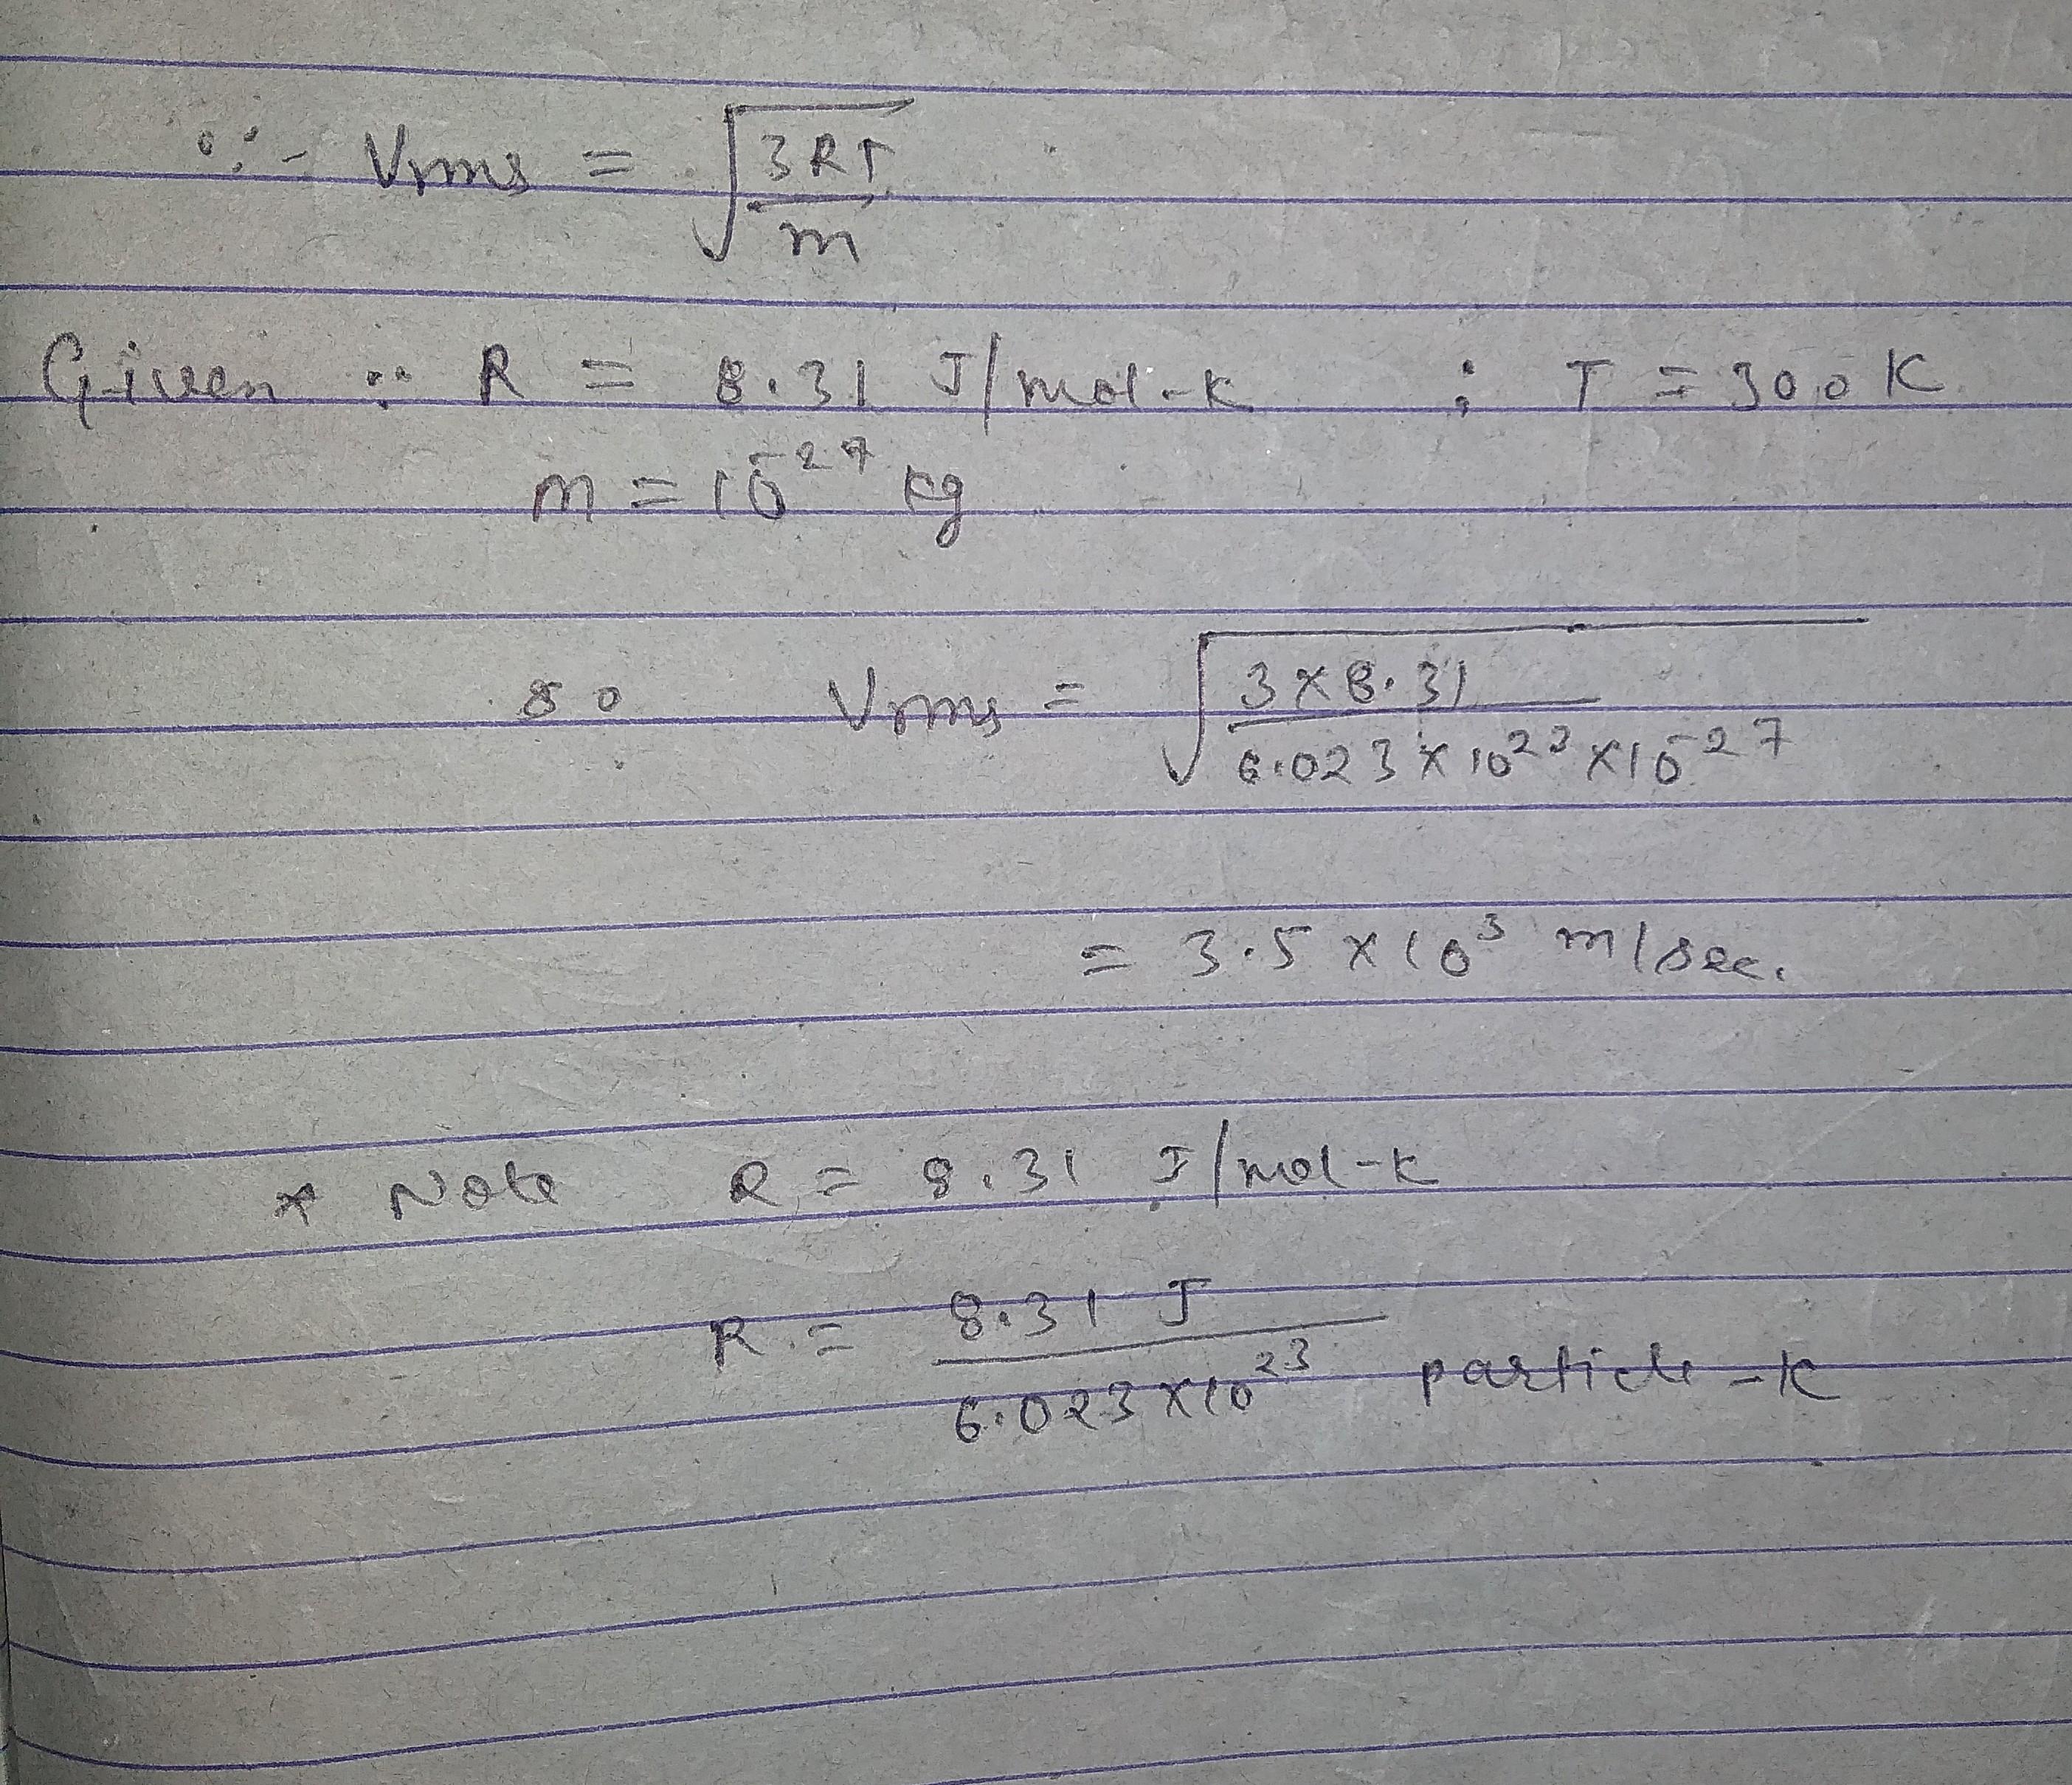 ∵ Vrms = √(3RT/m)
Given :: R = 8.31 J/mol-K ; T = 300 K
m = 10⁻²⁷ kg
so Vrms = √(3×8.31/6.023×10²³×10⁻²⁷)
= 3.5 × 10³ m/sec.
* Note R = 8.31 J/mol-K
R = 8.31 J/6.023×10²³ particle-K